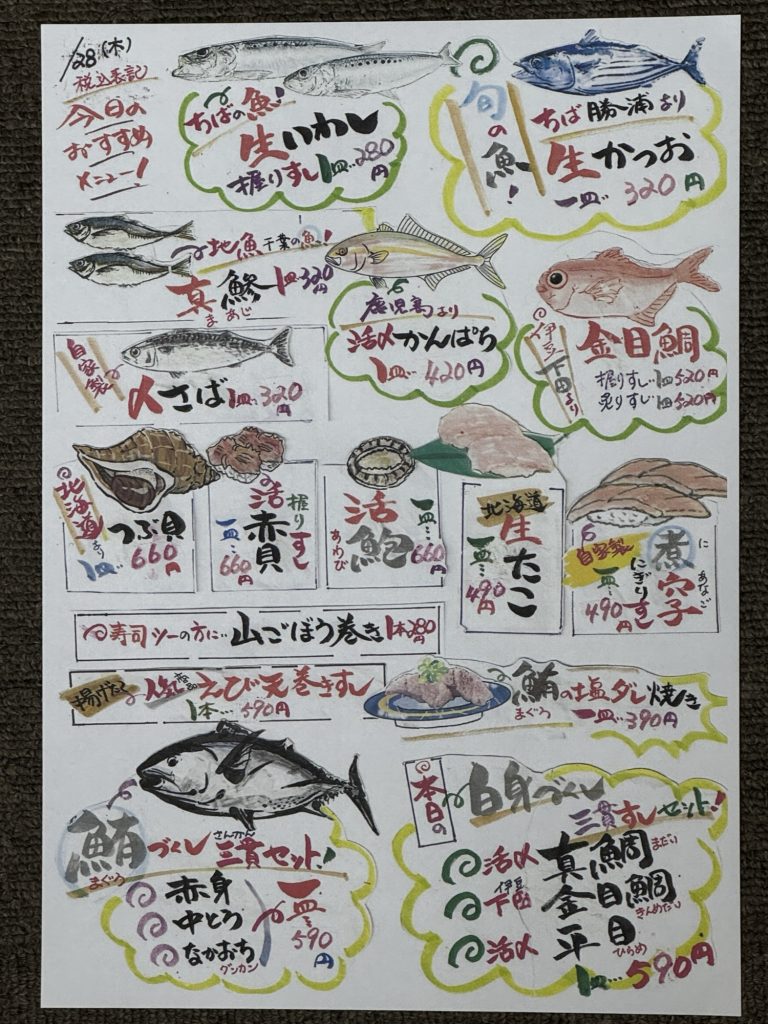 /28(木)
税込表記
今日の
おすすめ
メニュー!
ちばの魚!
生いわし
握りすし1皿…280円
旬の魚!
ちば勝浦より
生かつお
一皿…320円
地魚千葉の魚!
真鯵 1皿…320円
まあじ
鹿児島より
活〆かんぱち
1皿…420円
伊豆下田より
金目鯛
握りすし…1皿520円
炙りすし…1皿520円
自家製
〆さば1皿…320円
北海道より
つぶ貝
1皿…660円
活赤貝
握りすし
一皿…660円
活鮑
あわび
一皿…660円
北海道
生たこ
一皿…490円
自家製
煮穴子
にあなご
にぎりすし
一皿…490円
寿司ツーの方に…山ごぼう巻き1本280円
揚げたて
人気のえび天巻きすし
1本…590円
鮪の塩ダレ焼き
まぐろ
一皿…390円
鮪づくし三貫セット!
まぐろ
さんかん
赤身
中とろ
なかおち
グンカン
一皿…590円
本日の
白身づくし
三貫すしセット!
活〆 真鯛
まだい
伊豆
下田 金目鯛
きんめだい
活〆 平目
ひらめ
1皿…590円